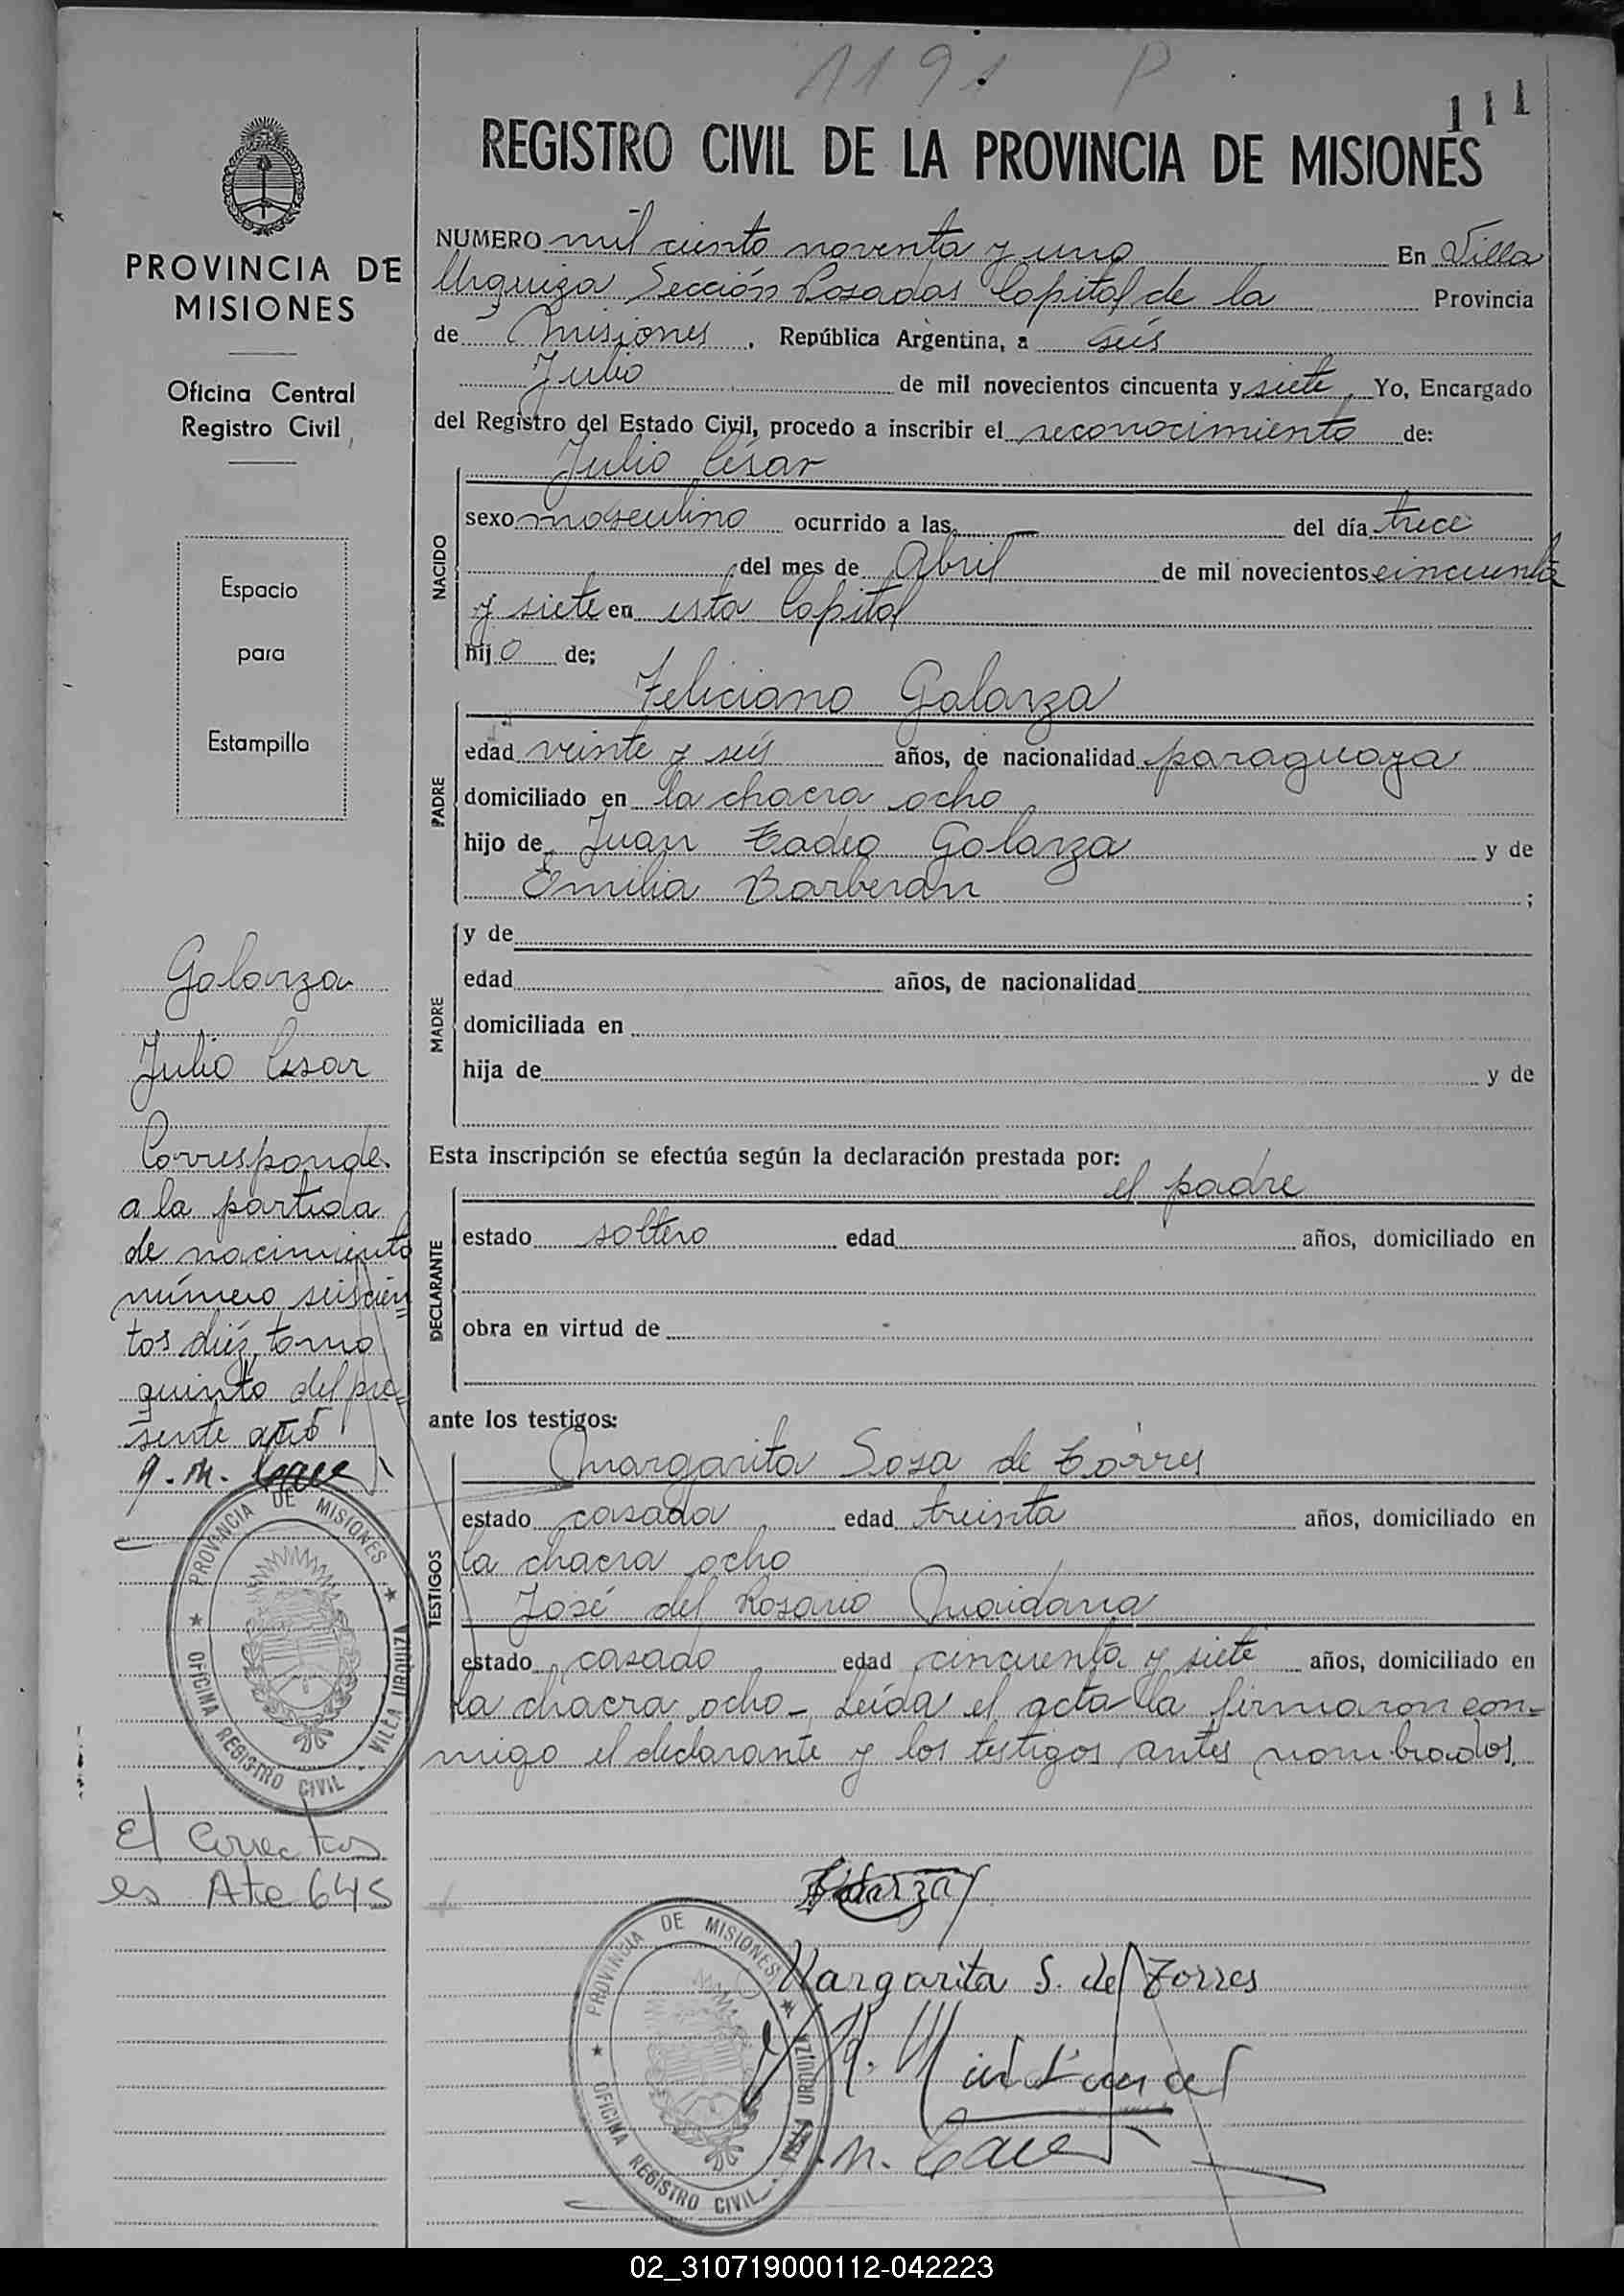 1191 P
111
REGISTRO CIVIL DE LA PROVINCIA DE MISIONES
PROVINCIA DE
MISIONES
Oficina Central
Registro Civil
Espacio
para
Estampilla
NUMERO mil ciento noventa y uno En Villa
Urquiza Sección Posadas Capital de la Provincia
de Misiones, República Argentina, a seis
Julio de mil novecientos cincuenta y siete, Yo, Encargado
del Registro del Estado Civil, procedo a inscribir el reconocimiento de:
NACIDO
Julio Cesar
sexo masculino ocurrido a las — del día trece
del mes de Abril de mil novecientos cincuenta
y siete en esta Capital
hijo de;
PADRE
Feliciano Galarza
edad veinte y seis años, de nacionalidad paraguaya
domiciliado en la chacra ocho
hijo de Juan Tadeo Galarza y de
Emilia Barberan ;
MADRE
y de
edad años, de nacionalidad
domiciliada en
hija de y de
Esta inscripción se efectúa según la declaración prestada por:
DECLARANTE
el padre
estado soltero edad años, domiciliado en
obra en virtud de
ante los testigos:
TESTIGOS
Margarita Sosa de Torres
estado casada edad treinta años, domiciliado en
la chacra ocho
José del Rosario Maidana
estado casado edad cincuenta y siete años, domiciliado en
la chacra ocho - Leída el acta la firmaron con=
migo el declarante y los testigos antes nombrados.
Galarza
Julio Cesar
Corresponde
a la partida
de nacimiento
número seiscien=
tos diéz, tomo
quinto del pre=
sente año
PROVINCIA DE MISIONES
OFICINA REGISTRO CIVIL - VILLA URQUIZA
El correcto
es Ate 645
Margarita S. de Torres
PROVINCIA DE MISIONES
OFICINA REGISTRO CIVIL - VILLA URQUIZA
02_310719000112-042223